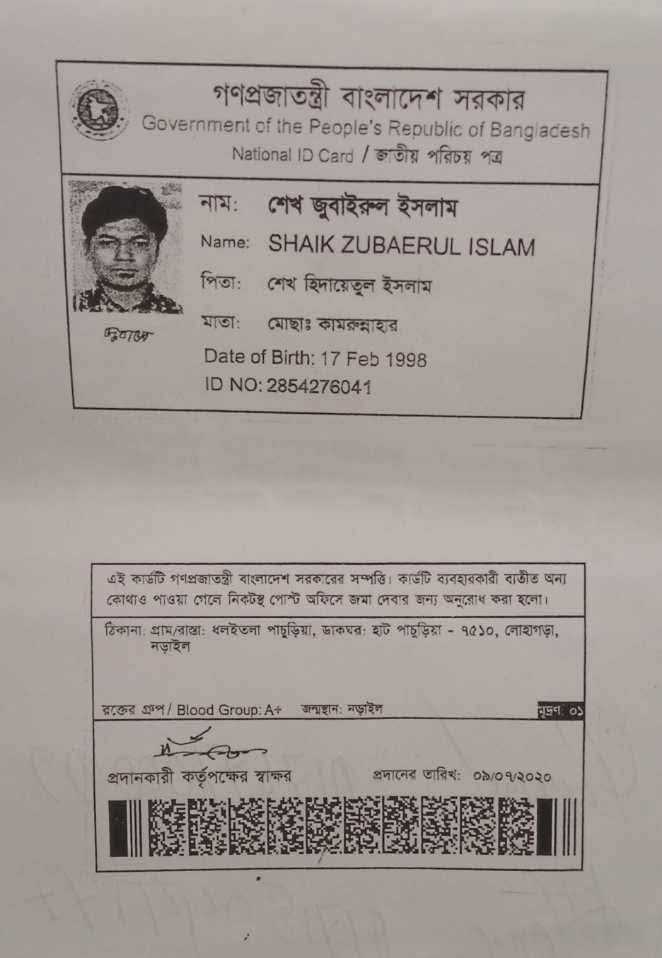 গণপ্রজাতন্ত্রী বাংলাদেশ সরকার
Government of the People's Republic of Bangladesh
National ID Card / জাতীয় পরিচয় পত্র
নাম: শেখ জুবাইরুল ইসলাম
Name: SHAIK ZUBAERUL ISLAM
পিতা: শেখ হিদায়েতুল ইসলাম
মাতা: মোছাঃ কামরুন্নাহার
Date of Birth: 17 Feb 1998
ID NO: 2854276041
এই কার্ডটি গণপ্রজাতন্ত্রী বাংলাদেশ সরকারের সম্পত্তি। কার্ডটি ব্যবহারকারী ব্যতীত অন্য
কোথাও পাওয়া গেলে নিকটস্থ পোস্ট অফিসে জমা দেবার জন্য অনুরোধ করা হলো।
ঠিকানা: গ্রাম/রাস্তা: ধলইতলা পাচুড়িয়া, ডাকঘর: হাট পাচুড়িয়া - ৭৫১০, লোহাগড়া,
নড়াইল
রক্তের গ্রুপ / Blood Group: A+ জন্মস্থান: নড়াইল মুদ্রণ: ০১
প্রদানকারী কর্তৃপক্ষের স্বাক্ষর প্রদানের তারিখ: ০৯/০৭/২০২০